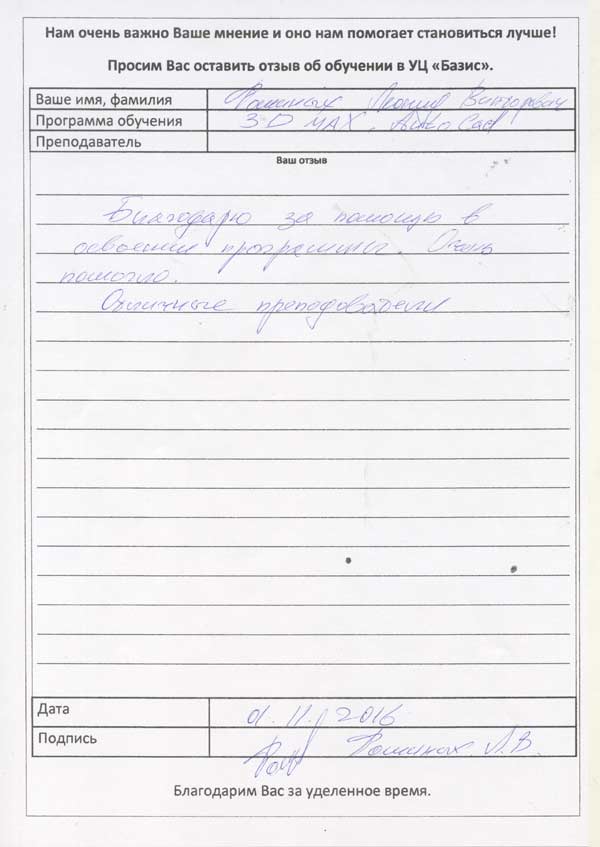 Нам очень важно Ваше мнение и оно нам помогает становиться лучше!
Просим Вас оставить отзыв об обучении в УЦ «Базис».
Ваше имя, фамилия Фоминых Леонид Викторович
Программа обучения 3-D MAX, AutoCad
Преподаватель
Ваш отзыв
Благодарю за помощь в
освоении программы. Очень
помогло.
Отличные преподователи
Дата 01.11.2016
Подпись Фоминых Л.В.
Благодарим Вас за уделенное время.